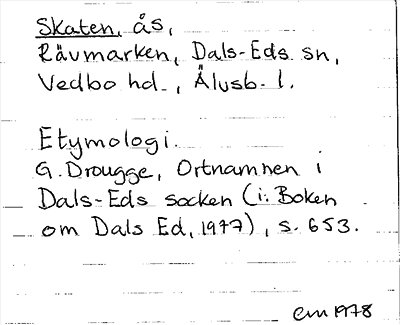 Skaten, ås,
Rävmarken, Dals-Eds sn,
Vedbo hd., Älvsb. l.
Etymologi.
G. Drougge, Ortnamnen i
Dals-Eds socken (i: Boken
om Dals Ed, 1977), s. 653.
em 1978